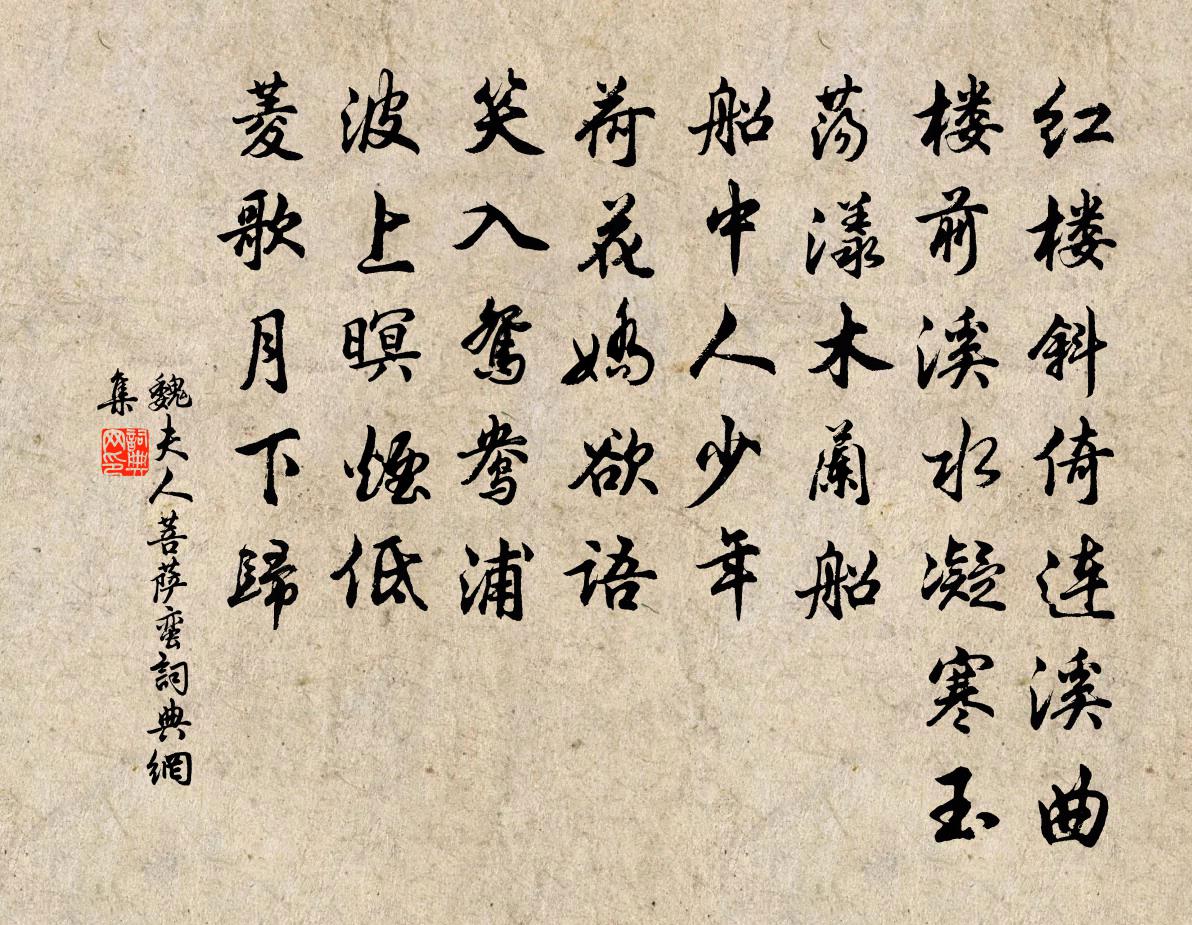 红楼斜倚连溪曲
楼前溪水凝寒玉
荡漾木蘭船
船中人少年
荷花嬌欲语
笑入鸳鸯浦
波上暝煙低
菱歌月下歸
魏夫人菩萨蛮詞典網
集
詞典
网印